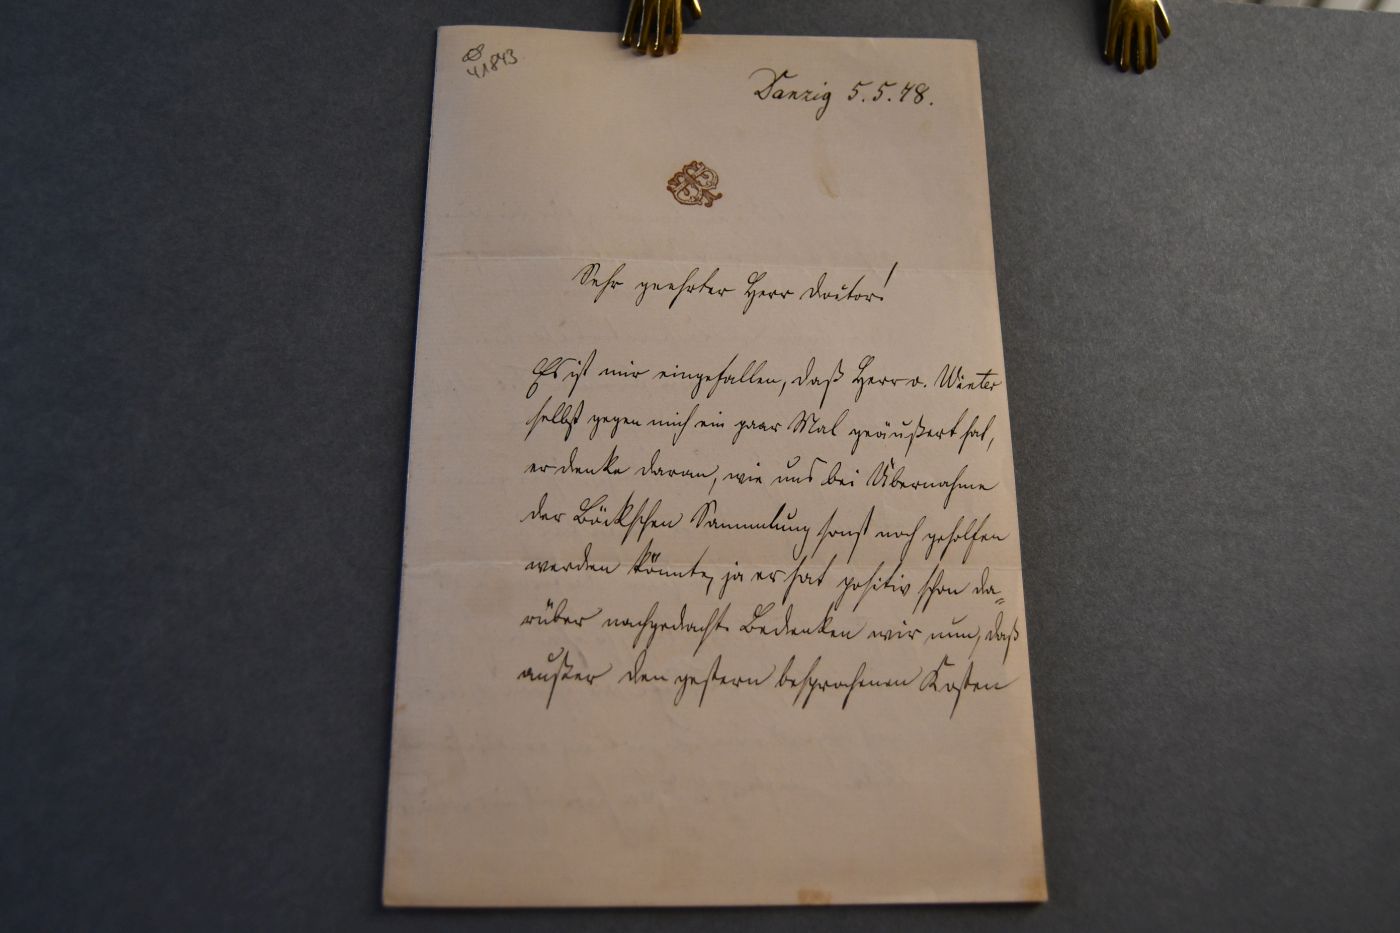 41843
Danzig 5.5.78.
Sehr geehrter Herr Doctor!
Es ist mir eingefallen, daß Herr v. Winter
selbst gegen mich ein paar Mal geäußert hat,
er denke daran, wie uns bei Übernahme
der Böckschen Sammlung sonst noch geholfen
werden könnte, ja er hat positiv schon da=
rüber nachgedacht. Bedenken wir nun, daß
außer den gestern besprochenen Kosten